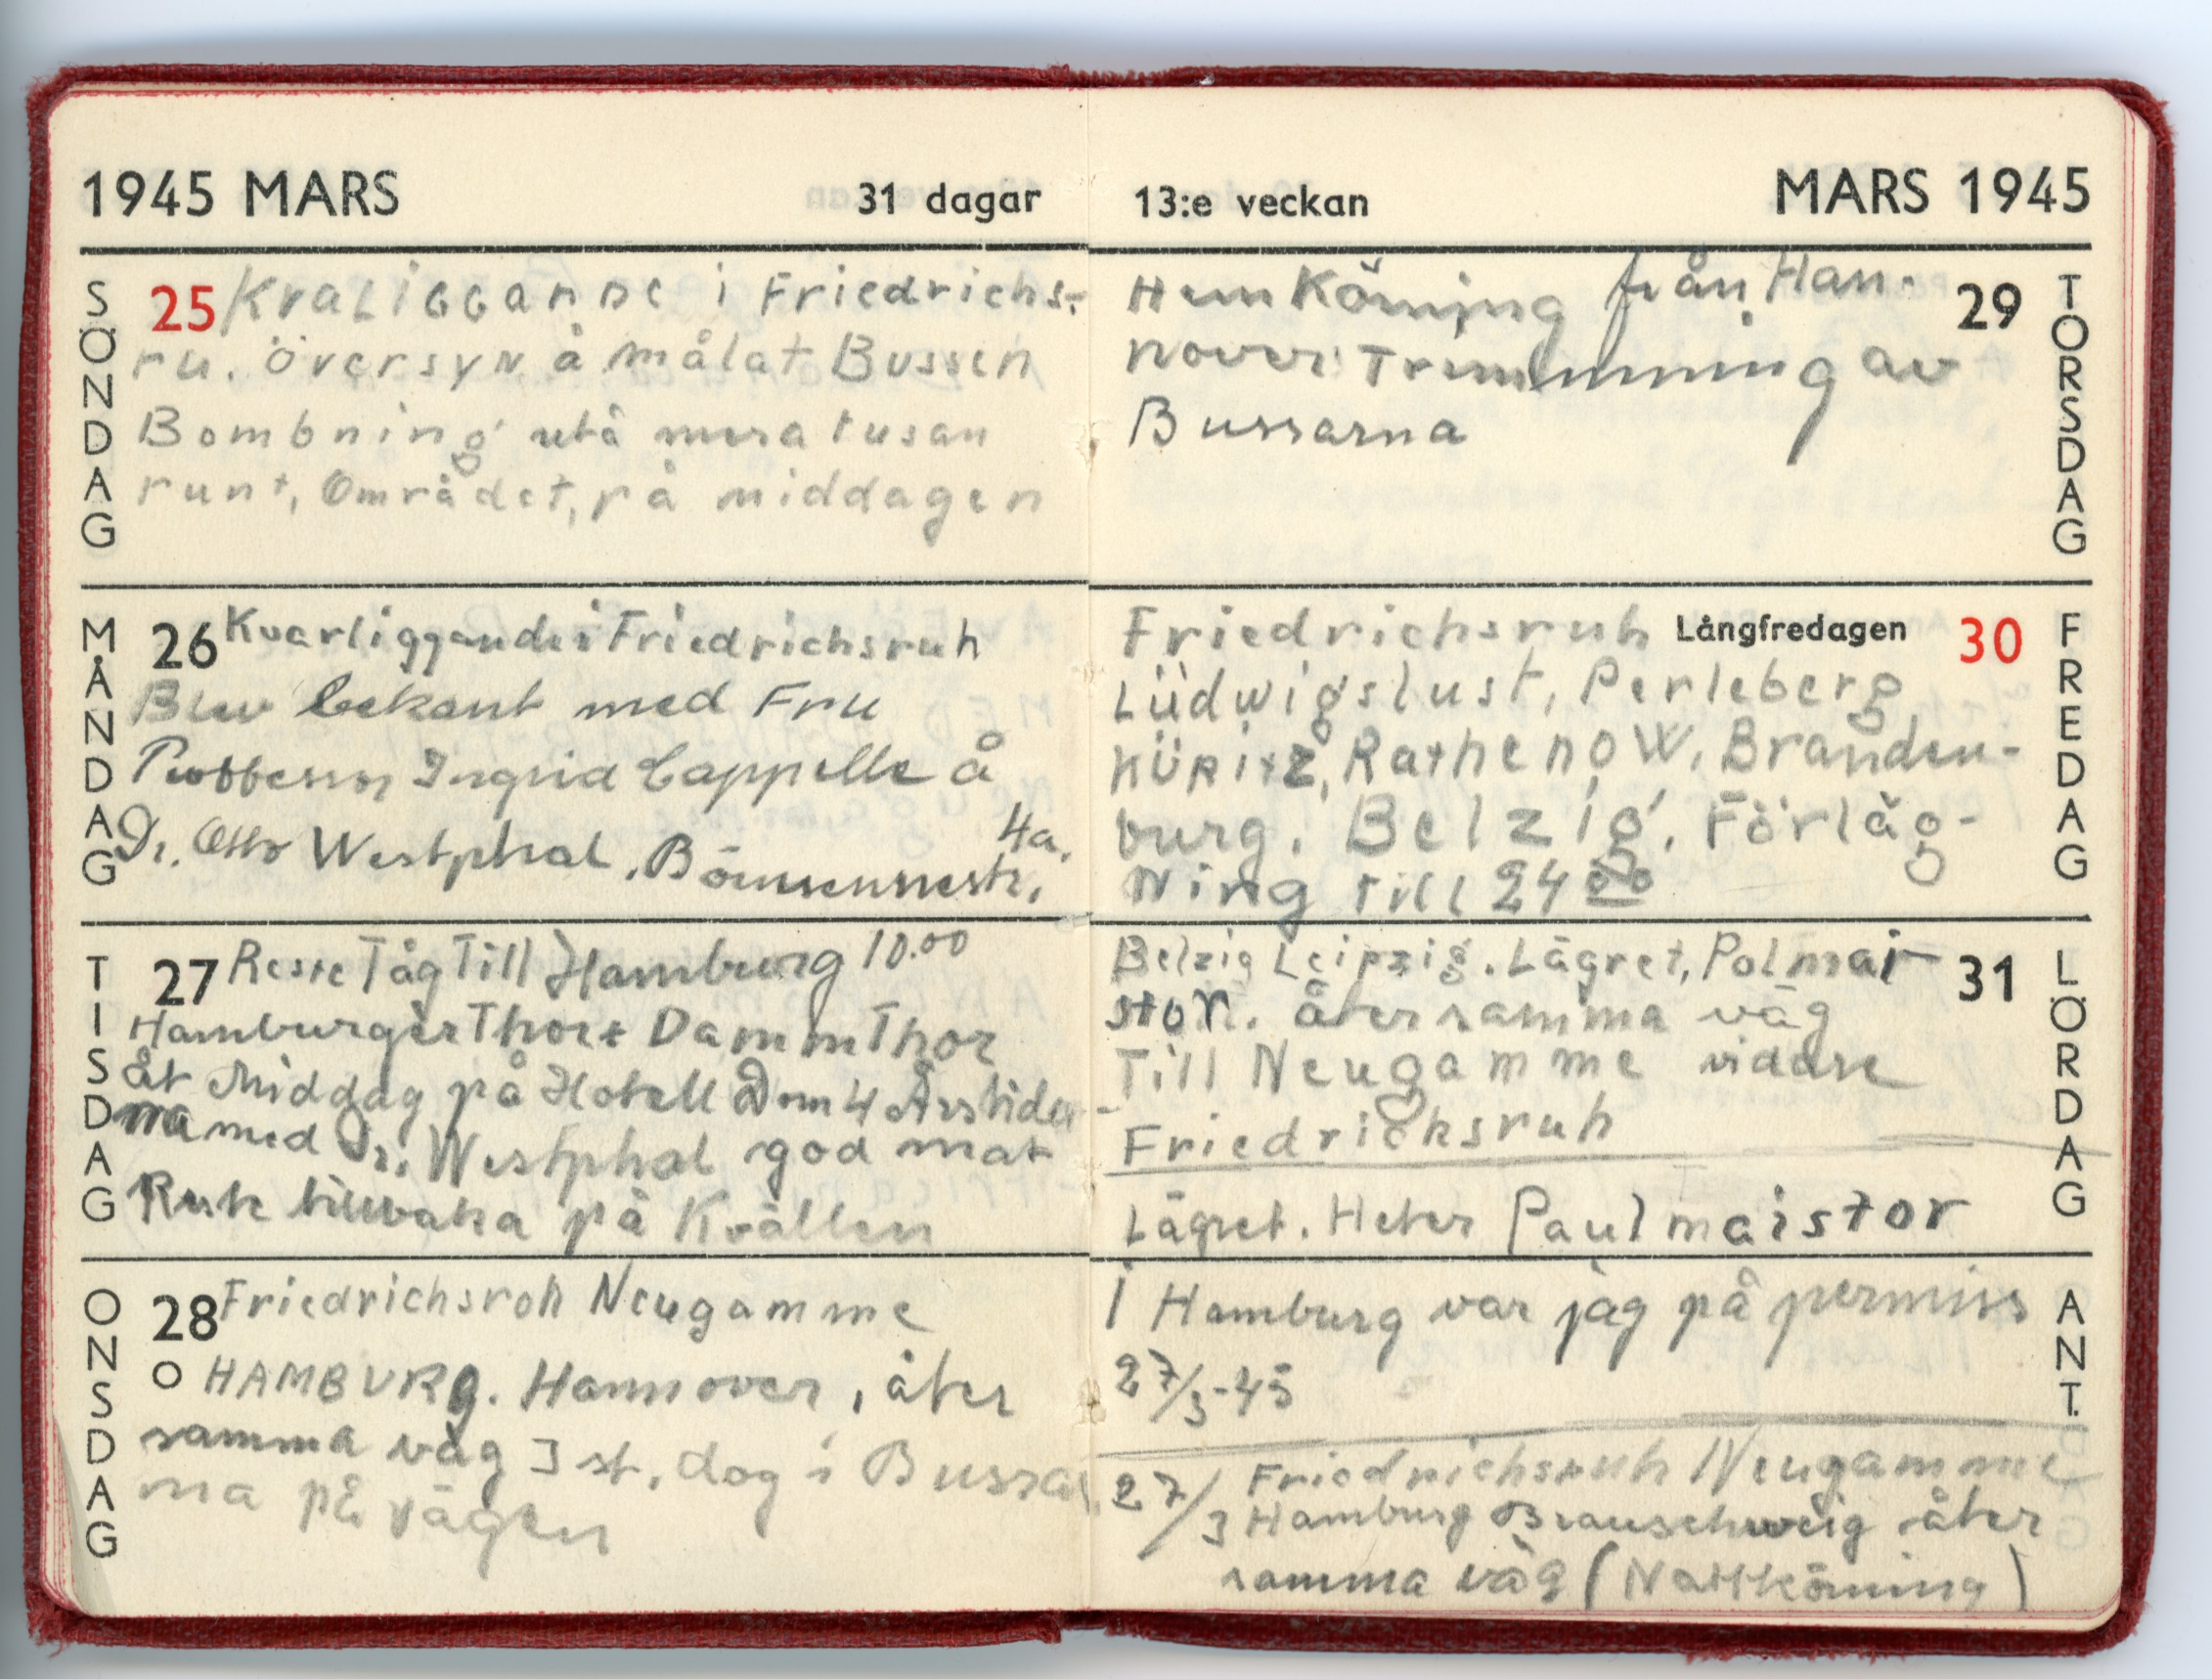 1945 MARS 31 dagar
SÖNDAG
25 Kvaliggande i Friedrichs-
ru. översyn å målat Bussen
Bombning utå mera tusan
runt, Området, på middagen
MÅNDAG
26 Kvarliggande i Friedrichsruh
Blev bekant med Fru
Ingrid Cappelle å
Dr. Otto Westphal. 4a.
TISDAG
27 Resте Tåg Till Hamburg 10.00
Hamburger Thor + Damm Thor
åt Middag på Hotell Dom 4 Årstider
na med Dr. Westphal god mat
tillbaka på Kvällen
ONSDAG
28 Friedrichsroh Neugamme
O HAMBURg. Hannover, åter
samma väg 3 st. dog i Bussar
na på vägen
13:e veckan MARS 1945
29 TORSDAG
Hem Körning från Han-
nover Trimmning av
Bussarna
Långfredagen 30 FREDAG
Friedrichsruh
Lüdwigslust, Perleberg
Küritz, Rathenow, Branden-
burg. Belzig. Förläg-
Ning Till 24 00
31 LÖRDAG
Belzig Leipzig. Lägret, Polmai-
stor. åter samma väg
Till Neugamme vidare
Friedrichsruh
Lägret. Heter Paulmaistor
ANT.
i Hamburg var jag på permiss
27/3-45
27/3 Friedrichsruh Neugamme
Hamburg Brauschweig åter
samma väg (Nattkörning)